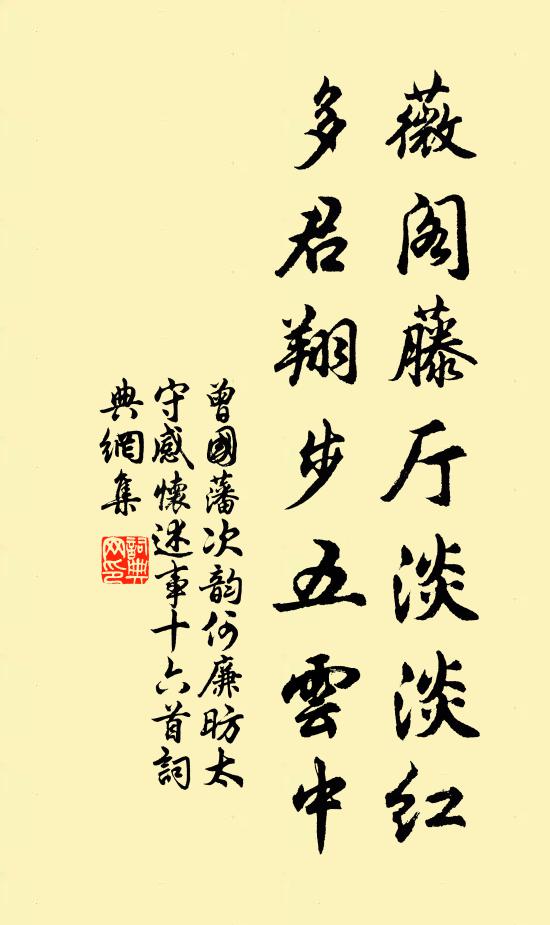 薇阁藤厅淡淡红
多君翔步五雲中
曾國藩次韵何廉昉太
守感懷述事十六首詞
典網集
詞典
网印